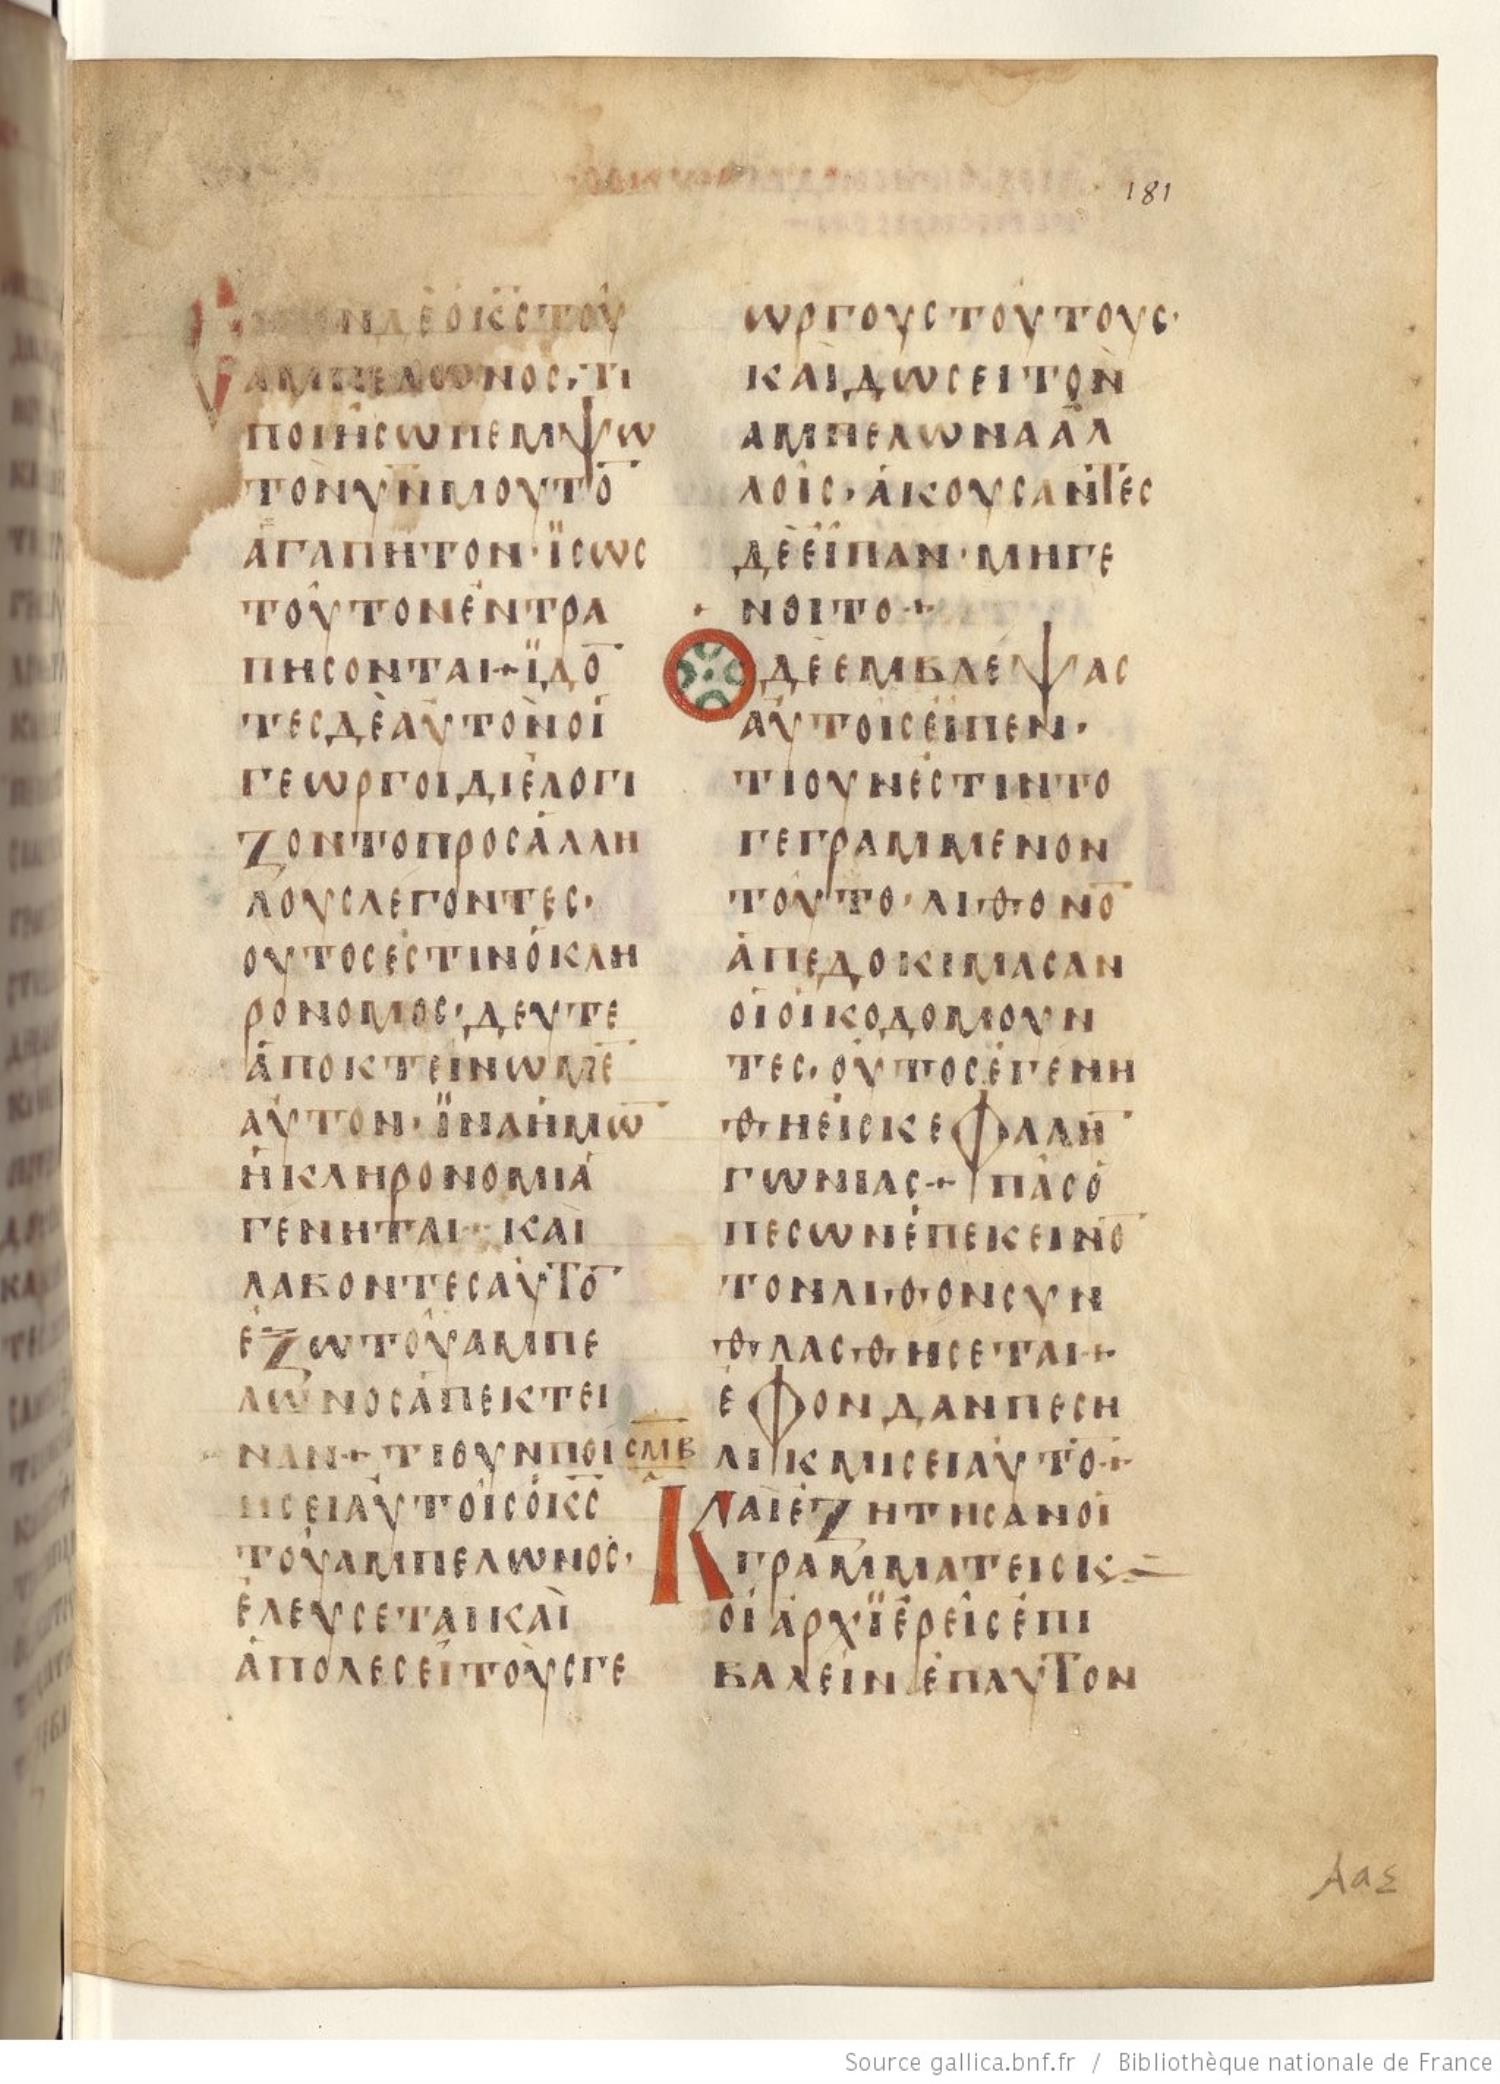 181
ΕΙΠΕΝΔΕΟΚ̅Σ̅ΤΟΥ
ΑΜΠΕΛΩΝΟΣ· ΤΙ
ΠΟΙΗΣΩΠΕΜΨΩ
ΤΟΝΥ̅Ν̅ΜΟΥΤΟ̅
ΑΓΑΠΗΤΟΝ· ΪΣΩΣ
ΤΟΥΤΟΝΕΝΤΡΑ
ΠΗΣΟΝΤΑΙ+ ΪΔΟ̅
ΤΕΣΔΕΑΥΤΟΝΟΙ
ΓΕΩΡΓΟΙΔΙΕΛΟΓΙ
ΖΟΝΤΟΠΡΟΣΑΛΛΗ
ΛΟΥΣΛΕΓΟΝΤΕΣ·
ΟΥΤΟΣΕΣΤΙΝΟΚΛΗ
ΡΟΝΟΜΟΣ· ΔΕΥΤΕ
ΑΠΟΚΤΕΙΝΩΜΕ̅
ΑΥΤΟΝ· ΪΝΑΗΜΩ̅
ΗΚΛΗΡΟΝΟΜΙΑ
ΓΕΝΗΤΑΙ+ ΚΑΙ
ΛΑΒΟΝΤΕΣΑΥΤΟ̅
ΕΞΩΤΟΥΑΜΠΕ
ΛΩΝΟΣΑΠΕΚΤΕΙ
ΝΑΝ+ ΤΙΟΥΝΠΟΙ
ΗΣΕΙΑΥΤΟΙΣΟΚ̅Σ̅
ΤΟΥΑΜΠΕΛΩΝΟΣ·
ΕΛΕΥΣΕΤΑΙΚΑΙ
ΑΠΟΛΕΣΕΙΤΟΥΣΓΕ
ΩΡΓΟΥΣΤΟΥΤΟΥΣ·
ΚΑΙΔΩΣΕΙΤΟΝ
ΑΜΠΕΛΩΝΑΑΛ
ΛΟΙΣ· ΑΚΟΥΣΑΝΤΕΣ
ΔΕΕΙΠΑΝ· ΜΗΓΕ
ΝΟΙΤΟ+
ΟΔΕΕΜΒΛΕΨΑΣ
ΑΥΤΟΙΣΕΙΠΕΝ·
ΤΙΟΥΝΕΣΤΙΝΤΟ
ΓΕΓΡΑΜΜΕΝΟΝ
ΤΟΥΤΟ· ΛΙΘΟΝΟ̅
ΑΠΕΔΟΚΙΜΑΣΑΝ
ΟΙΟΙΚΟΔΟΜΟΥΝ
ΤΕΣ· ΟΥΤΟΣΕΓΕΝΗ
ΘΗΕΙΣΚΕΦΑΛΗ̅
ΓΩΝΙΑΣ+ ΠΑΣΟ
ΠΕΣΩΝΕΠΕΚΕΙΝΟ̅
ΤΟΝΛΙΘΟΝΣΥΝ
ΘΛΑΣΘΗΣΕΤΑΙ+
ΕΦΟΝΔΑΝΠΕΣΗ
ΛΙΚΜΙΣΕΙΑΥΤΟ̅+
Σ̅Μ̅Β̅
ΚΑΙΕΖΗΤΗΣΑΝΟΙ
ΓΡΑΜΜΑΤΕΙΣΚ
ΟΙΑΡΧΪΕΡΕΙΣΕΠΙ
ΒΑΛΕΙΝΕΠΑΥΤΟΝ
Ααε
Source gallica.bnf.fr / Bibliothèque nationale de France